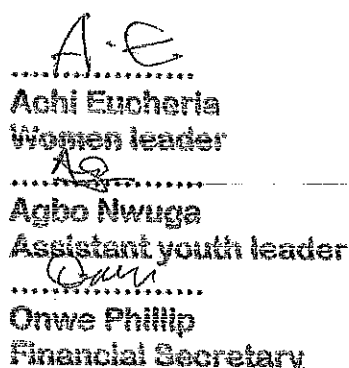 A.E
Achi Eucheria
Women leader
Agbo Nwuga
Assistant youth leader
Onwe Phillip
Financial Secretary